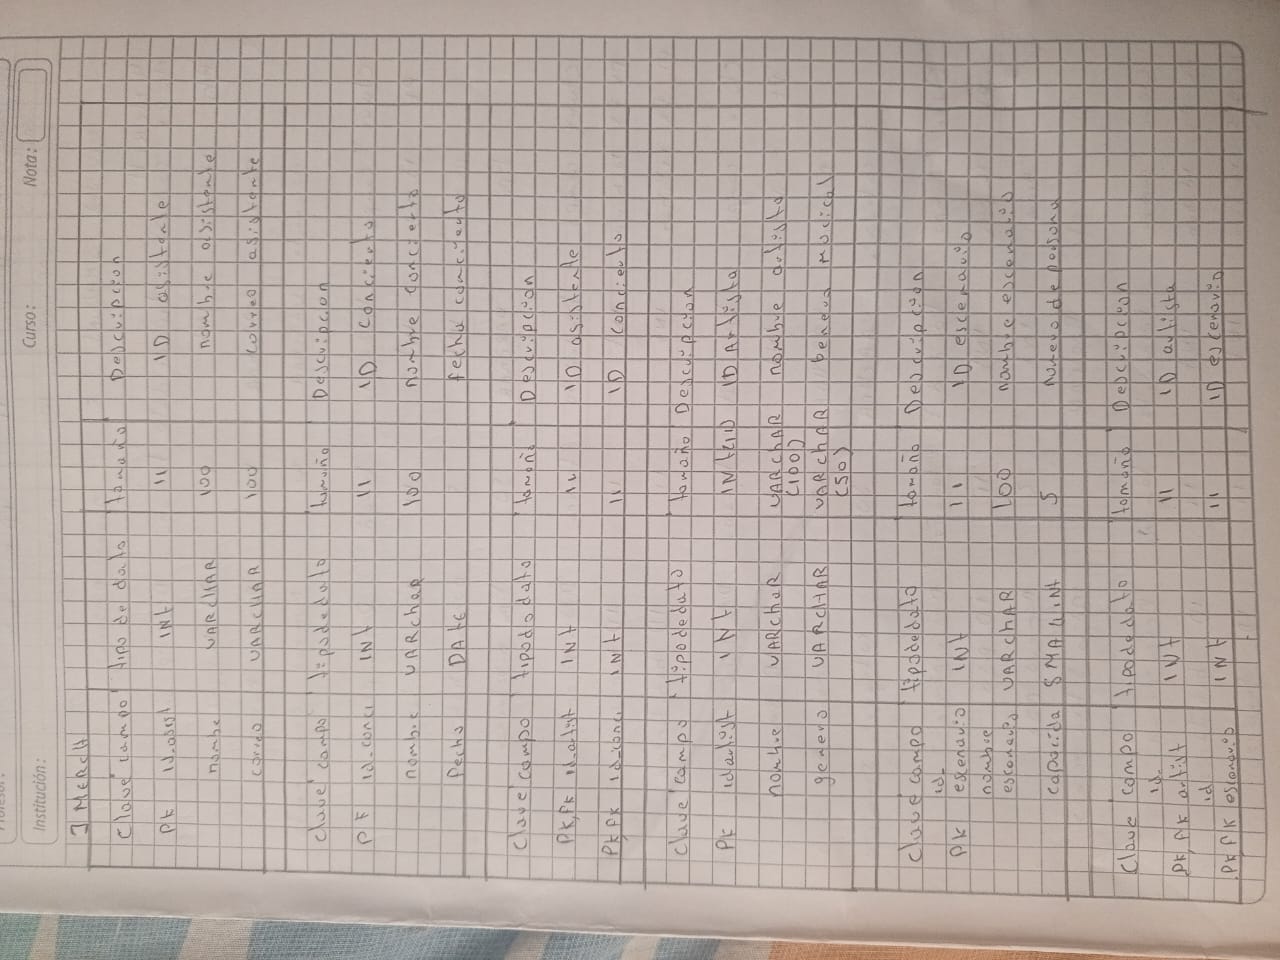 Institución: Curso: Nota:
Clave campo tipo de dato tamaño Descripcion
PK id_asist INT 11 ID asistente
nombre VARCHAR 100 nombre asistente
correo VARCHAR 100 correo asistente
Clave campo tipo de dato tamaño Descripcion
PK id_conci INT 11 ID Concierto
nombre VARCHAR 100 nombre concierto
fecha DATE fecha concierto
Clave campo tipo de dato tamaño Descripcion
PK, FK id_asist INT 11 ID asistente
PK, FK id_conci INT 11 ID Concierto
Clave campo tipo de dato tamaño Descripcion
PK idartist INT INT(11) ID Artista
nombre VARCHAR VARCHAR (100) nombre artista
genero VARCHAR VARCHAR (50) musical
Clave campo tipo de dato tamaño Descripcion
PK id_ escenario INT 11 ID escenario
nombre escenario VARCHAR 100 nombre escenario
capacida SMALLINT 5 de persona
Clave campo tipo de dato tamaño Descripcion
PK, FK id_ artist INT 11 ID artista
PK FK id escenario INT 11 ID escenario